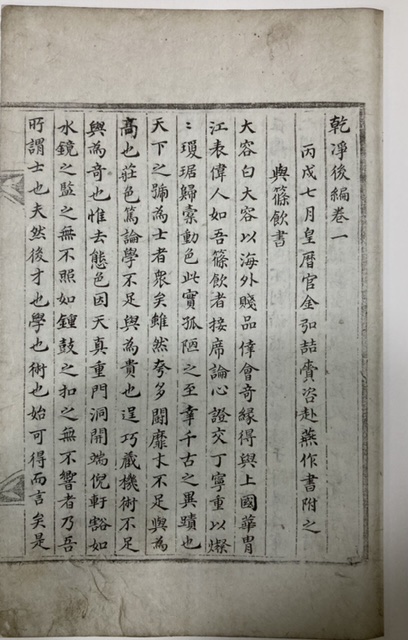 乾淨後編卷一
丙戌七月皇曆官金弘喆賷咨赴燕作書附之
與篠飮書
大容白大容以海外賤品倖會奇緣得與上國華胄
江表偉人如吾篠飮者接席論心證交丁寧重以燦
〻瓊琚歸橐動色此實孤陋之至幸千古之異蹟也
天下之號為士者衆矣雖然夸多鬪靡才不足與為
高也莊色篤論學不足與為貴也逞巧藏機術不足
與為奇也惟去態色因天真重門洞開端倪軒豁如
水鏡之監之無不照如鍾鼓之扣之無不響者乃吾
所謂士也夫然後才也學也術也始可得而言矣是